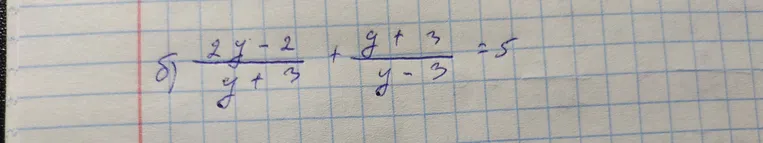 б) (2y - 2)/(y + 3) + (y + 3)/(y - 3) = 5